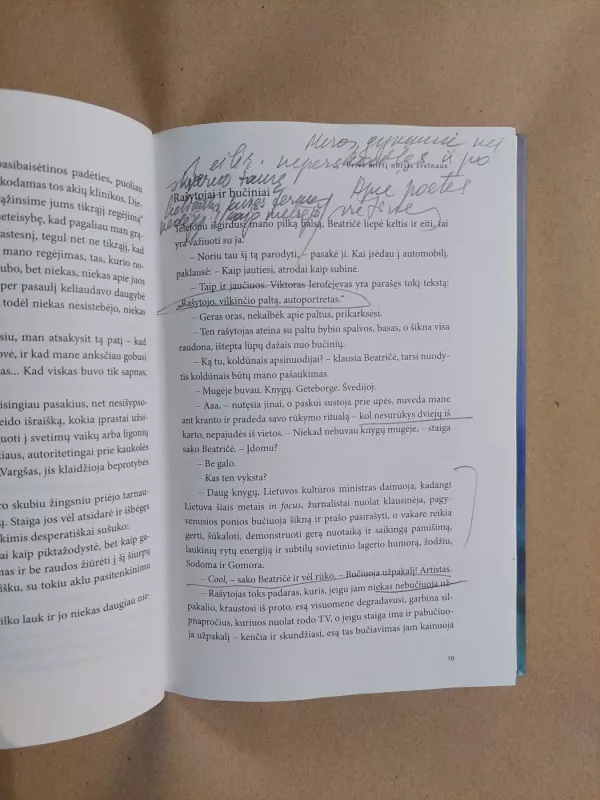 pasibaisėtinos padėties, puoliau
kodamas tos akių klinikos. Die-
gąžinsime jums tikrąjį regėjimą"
seteisybę, kad pagaliau man grą-
astesnį, tegul net ne tikrąjį, kad
mano regėjimas, tas, kurio no-
ubo, bet niekas, niekas apie juos
per pasaulį keliaudavo daugybė
todėl niekas nesistebėjo, niekas
siu, man atsakysit tą patį – kad
ovė, ir kad mane anksčiau gobusi
as... Kad viskas buvo tik sapnas,
isingiau pasakius, net nesišypso-
eido išraišką, kokia įprastai užsi-
uoti į svetimų vaikų arba ligonių
čiaus, autoritetingai prie kaukolės
Vargšas, jis klaidžioja beprotybės
ro skubiu žingsniu priėjo tarnau-
ų. Staiga jos vėl atsidarė ir išbėgęs
kimis desperatiškai sušuko:
ai kaip piktažodystė, bet kaip ga-
mas ir be raudos žiūrėti į šį šiurpų
išku, su tokiu aklu pasitenkinimu
ilko lauk ir jo niekas daugiau nie-
Prieš mirtį norisi švelnaus
Apie poetes
Rašytojai ir bučiniai
Telefonu išgirdusi mano pilką balsą, Beatričė liepė keltis ir eiti, tai
yra važiuoti su ja.
– Noriu tau šį tą parodyti, – pasakė ji. Kai įsėdau į automobilį,
paklausė: – Kaip jautiesi, atrodai kaip subinė.
– Taip ir jaučiuos. Viktoras Jerofejevas yra parašęs tokį tekstą:
„Rašytojo, vilkinčio paltą, autoportretas."
– Geras oras, nekalbėk apie paltus, prikarksėsi.
– Ten rašytojas ateina su paltu bybio spalvos, basas, o šikna visa
raudona, ištepta lūpų dažais nuo bučinių.
– Ką tu, koldūnais apsinuodijai? – klausia Beatričė, tarsi nuody-
tis koldūnais būtų mano pašaukimas.
– Mugėje buvau. Knygų. Geteborge. Švedijoj.
– Aaa, – nutęsia jinai, o paskui sustoja prie upės, nuveda mane
ant kranto ir pradeda savo rūkymo ritualą – kol nesurūkys dviejų iš
karto, nepajudės iš vietos. – Niekad nebuvau knygų mugėje, – staiga
sako Beatričė. – Įdomu?
– Be galo.
– Kas ten vyksta?
– Daug knygų, Lietuvos kultūros ministras dainuoja, kadangi
Lietuva šiais metais in focus, žurnalistai nuolat klausinėja, pagy-
venusios ponios bučiuoja šikną ir prašo pasirašyti, o vakare reikia
gerti, šūkaloti, demonstruoti gerą nuotaiką ir saikingą pamišimą,
laukinių rytų energiją ir subtilų sovietinio lagerio humorą, žodžiu,
Sodoma ir Gomora.
– Cool, – sako Beatričė ir vėl rūko. – Bučiuoja užpakalį! Artistas.
– Rašytojas toks padaras, kuris, jeigu jam niekas nebučiuoja už-
pakalio, kraustosi iš proto, esą visuomenė degradavusi, garbina sil-
pnapročius, kuriuos nuolat rodo TV, o jeigu staiga ima ir pabučiuo-
ja užpakalį – kenčia ir skundžiasi, esą tas bučiavimas jam kainuoja
19